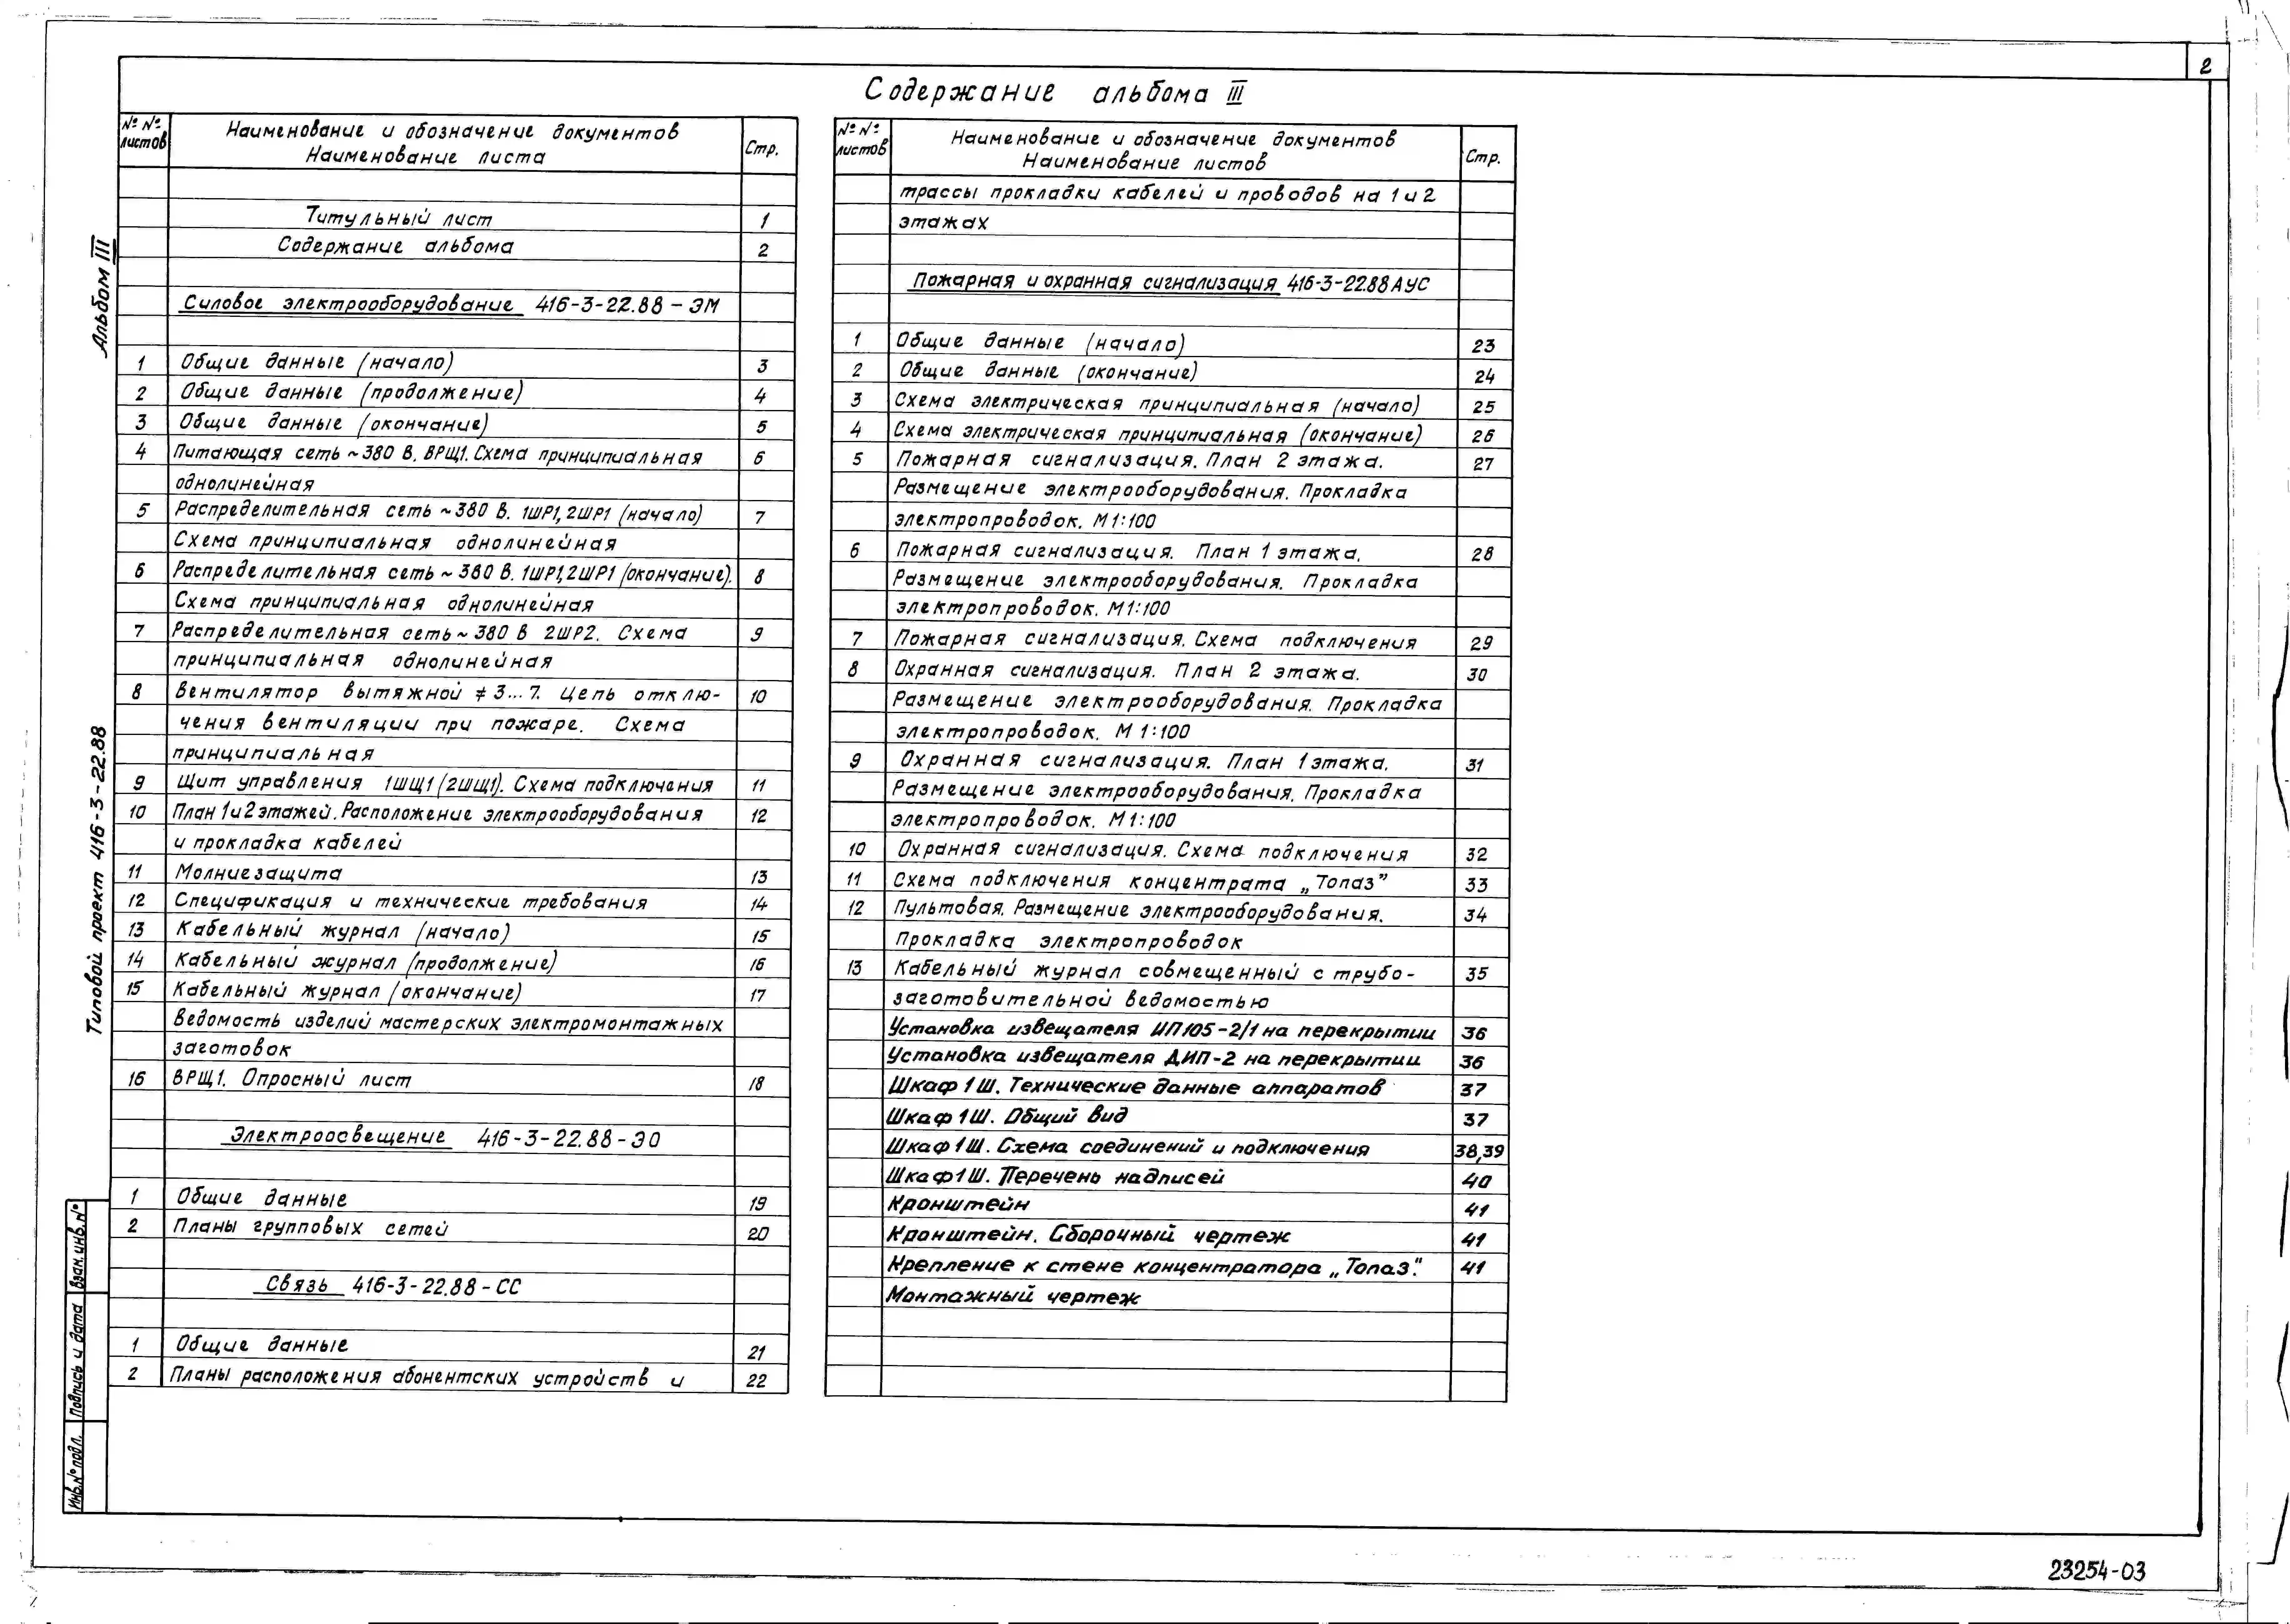 2
Содержание альбома III
№ №
листов
Наименование и обозначение документов
Наименование листа
Стр.
Титульный лист 1
Содержание альбома 2
Силовое электрооборудование 416-3-22.88 - ЭМ
1 Общие данные (начало) 3
2 Общие данные (продолжение) 4
3 Общие данные (окончание) 5
4 Питающая сеть ~380 В. ВРЩ1. Схема принципиальная 6
однолинейная
5 Распределительная сеть ~380 В. 1ШР1, 2ШР1 (начало) 7
Схема принципиальная однолинейная
6 Распределительная сеть ~ 380 В. 1ШР1, 2ШР1 (окончание). 8
Схема принципиальная однолинейная
7 Распределительная сеть ~ 380 В 2ШР2. Схема 9
принципиальная однолинейная
8 Вентилятор вытяжной ≠ 3...7. Цепь отклю- 10
чения вентиляции при пожаре. Схема
принципиальная
9 Щит управления 1ШЩ1 (2ШЩ1). Схема подключения 11
10 План 1 и 2 этажей. Расположение электрооборудования 12
и прокладка кабелей
11 Молниезащита 13
12 Спецификация и технические требования 14
13 Кабельный журнал (начало) 15
14 Кабельный журнал (продолжение) 16
15 Кабельный журнал (окончание) 17
Ведомость изделий мастерских электромонтажных
заготовок
16 ВРЩ1. Опросный лист 18
Электроосвещение 416-3-22.88-ЭО
1 Общие данные 19
2 Планы групповых сетей 20
Связь 416-3-22.88-СС
1 Общие данные 21
2 Планы расположения абонентских устройств и 22
№ №
листов
Наименование и обозначение документов
Наименование листов
Стр.
трассы прокладки кабелей и проводов на 1 и 2
этажах
Пожарная и охранная сигнализация 416-3-22.88 АУС
1 Общие данные (начало) 23
2 Общие данные (окончание) 24
3 Схема электрическая принципиальная (начало) 25
4 Схема электрическая принципиальная (окончание) 26
5 Пожарная сигнализация. План 2 этажа. 27
Размещение электрооборудования. Прокладка
электропроводок. М 1:100
6 Пожарная сигнализация. План 1 этажа. 28
Размещение электрооборудования. Прокладка
электропроводок. М 1:100
7 Пожарная сигнализация. Схема подключения 29
8 Охранная сигнализация. План 2 этажа. 30
Размещение электрооборудования. Прокладка
электропроводок. М 1:100
9 Охранная сигнализация. План 1 этажа. 31
Размещение электрооборудования. Прокладка
электропроводок. М 1:100
10 Охранная сигнализация. Схема подключения 32
11 Схема подключения концентрата „Топаз” 33
12 Пультовая. Размещение электрооборудования. 34
Прокладка электропроводок
13 Кабельный журнал совмещенный с трубо- 35
заготовительной ведомостью
Установка извещателя ИП105-2/1 на перекрытии 36
Установка извещателя ДИП-2 на перекрытии 36
Шкаф 1Ш. Технические данные аппаратов 37
Шкаф 1Ш. Общий вид 37
Шкаф 1Ш. Схема соединений и подключения 38,39
Шкаф 1Ш. Перечень надписей 40
Кронштейн 41
Кронштейн. Сборочный чертеж 41
Крепление к стене концентратора „Топаз". 41
Монтажный чертеж
Альбом III
Типовой проект 416-3-22.88
Взам. инв. №
Подпись и дата
Инв. № подл.
23254-03